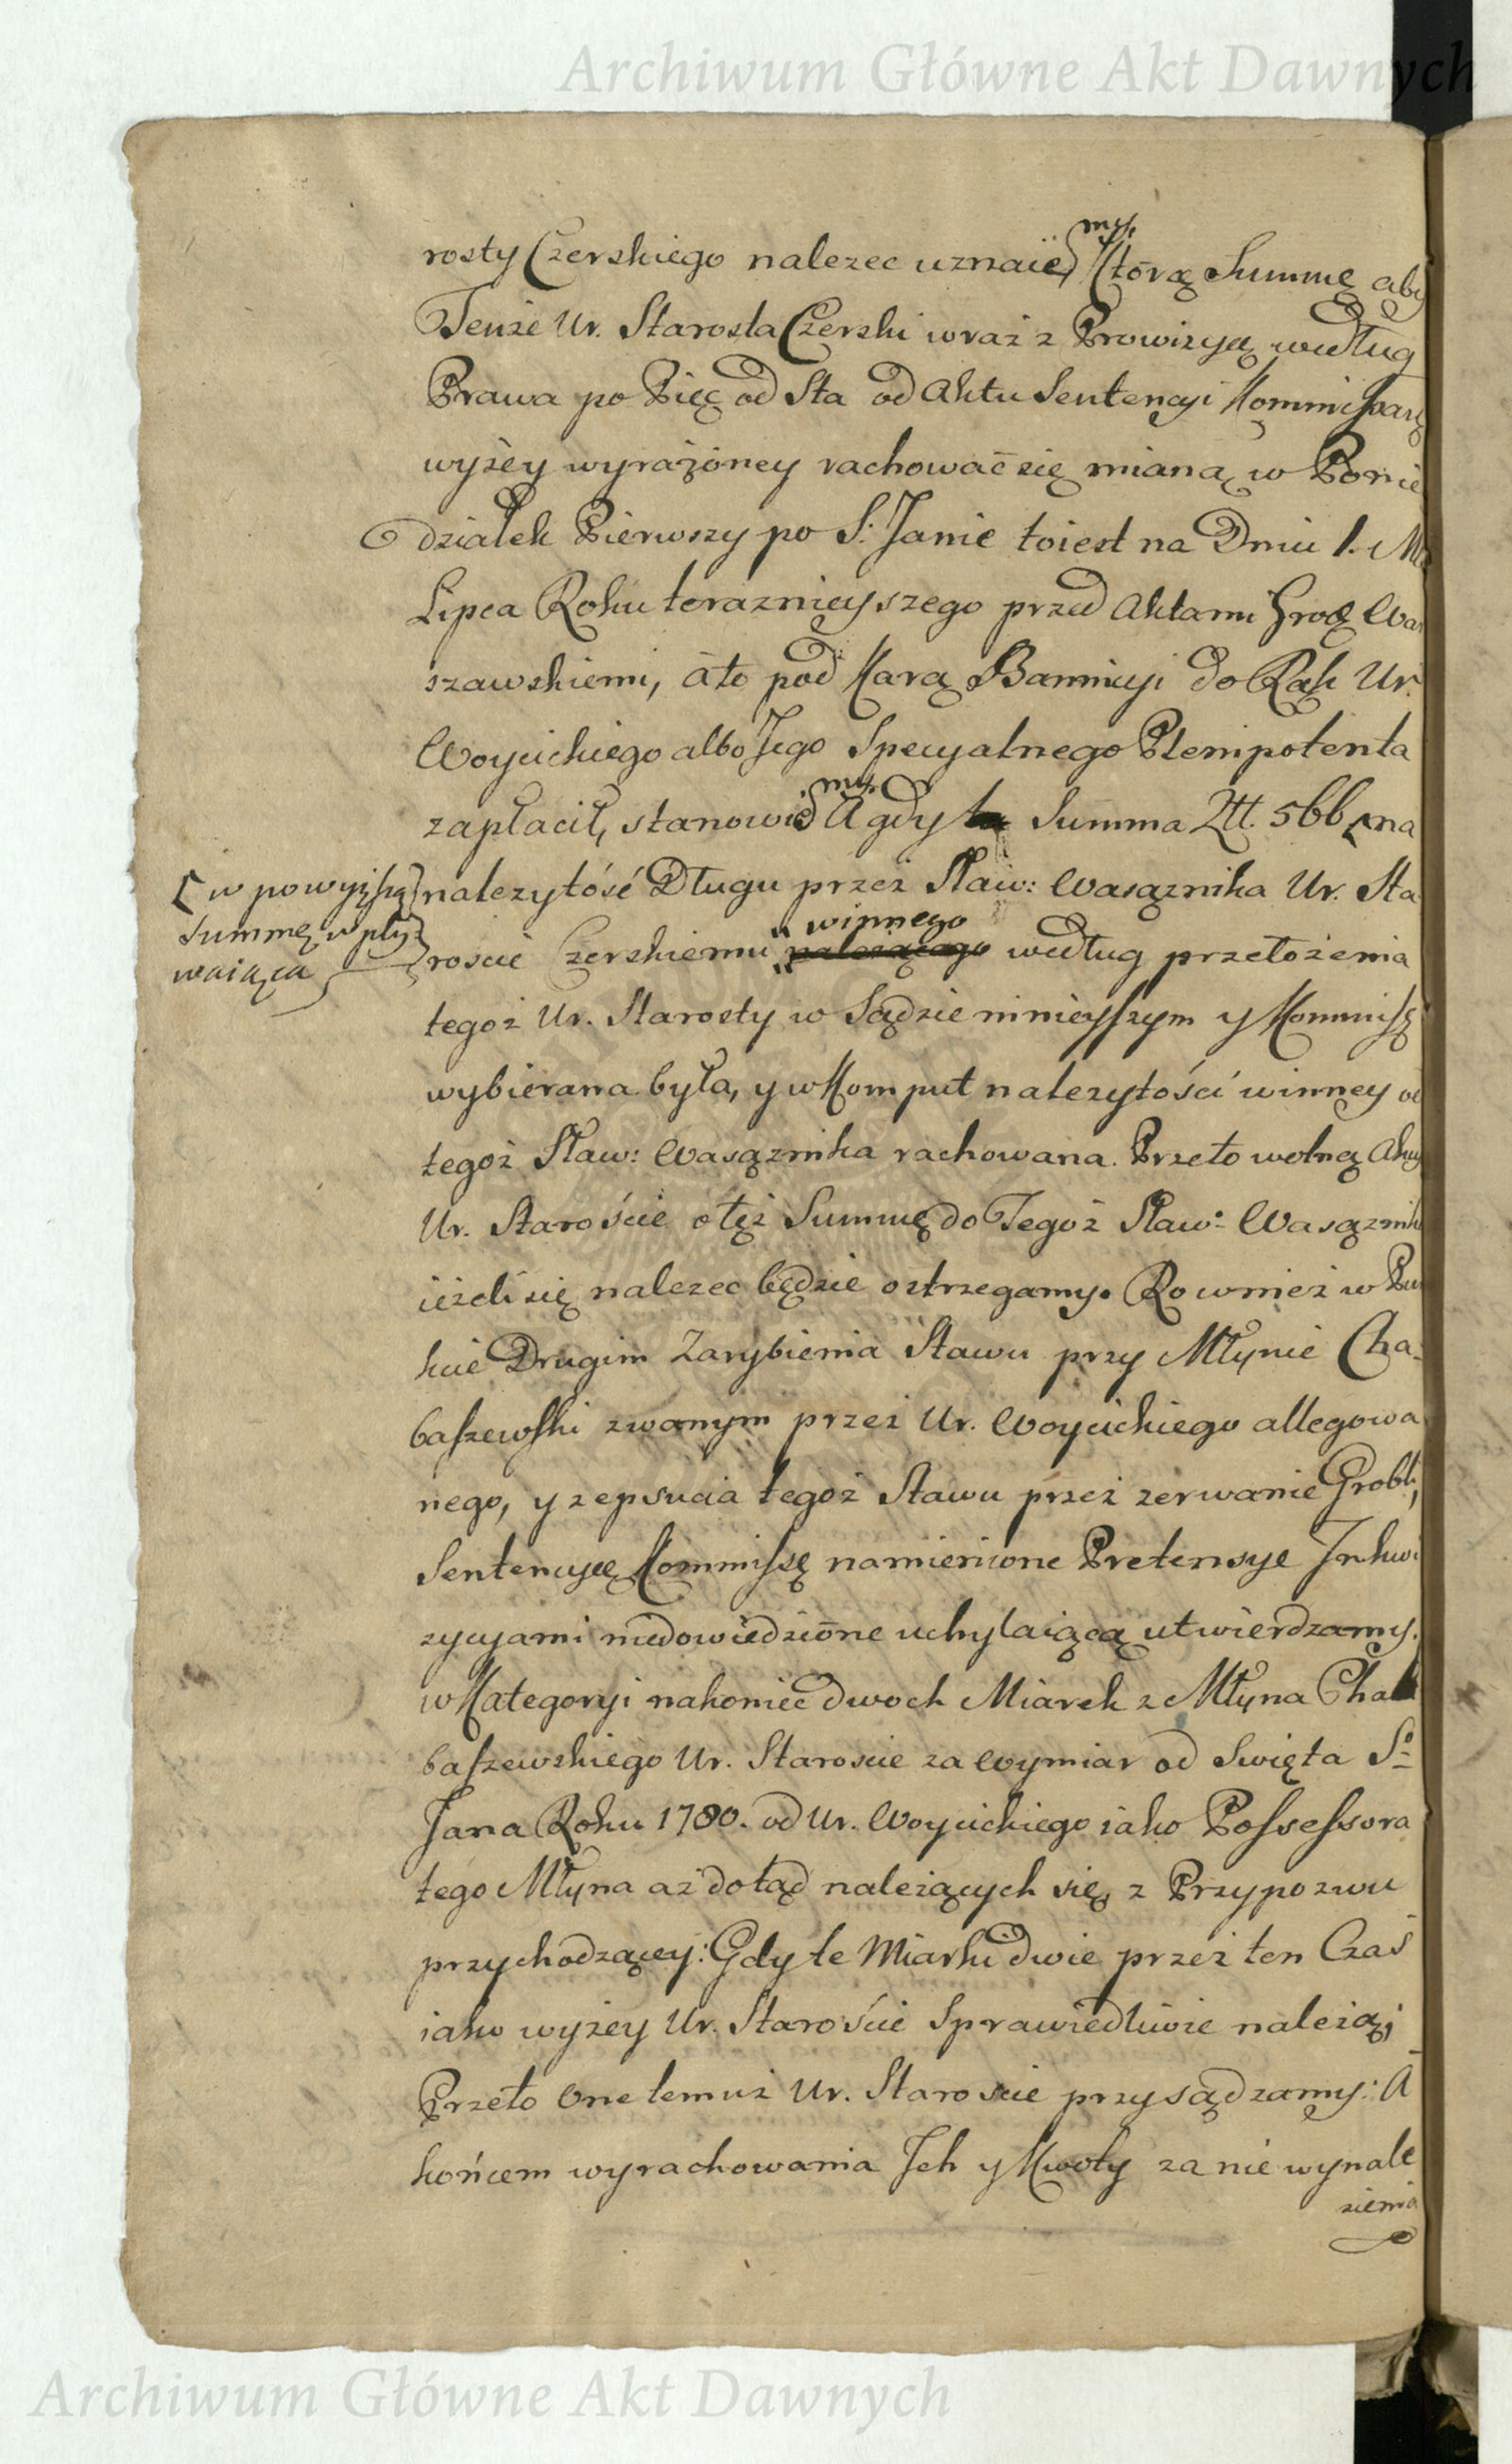 Archiwum Główne Akt Dawnych
rosty Czerskiego nalezec uznaie
my.
Którą Summę aby
Tenże Ur. Starosta Czerski wraz z Prowizyą według
Prawa po Pięć od Sta od Aktu Sentencyi
wyżey wyrażoney rachować się mianą w Ponie
działek Pierwszy po S: Janie toiest na Dniu 1. M
Lipca Roku teraznieyszego przed Aktami Grod War
szawskiemi, áto pod Karą Bannicyi do Rąk Ur.
Woycickiego albo Jego Specyalnego Plenipotenta
zapłacił, stanowie
my.
A gdy ta Summa Ztt. 566 na
[ w powyższą
Summę wpły
waiąca
nalezytość Długu przez Sław: Wasąznika Ur. Sta
winnego
roscie Czerskiemu należącego według przełożenia
tegoż Ur. Starosty w Sądzie ninieyszym y Kommiss
wybierana była, y w Komput nalezytości winney od
tegoż Sław: Wasąznika rachowana. Przeto wolną
Ur. Staroście o tęż Summę do Tegoż Sław: Wasąznik
ieżeli się nalezec będzie ostrzegamy. Rownież w Pun
kcie Drugim Zarybienia Stawu przy Młynie Cha-
baszewski zwanym przez Ur. Woycickiego allegowa
nego, y zepsucia tegoż Stawu przez zerwanie Grobli,
Sentencyę Kommiss namienione Pretensye Inkwi
zycyami niedowiedzióne uchylaiącą utwierdzamy.
w Kategoryi nakoniec dwoch Miarek z Młyna Cha
baszewskiego Ur. Staroscie za Wymiar od Swięta So
Jana Roku 1780. od Ur. Woycickiego iako Possessora
tego Młyna aż dotąd należących się, z Przypozwu
przychodzącey: Gdy te Miarki dwie przez ten Czas
iako wyżey Ur. Staroście Sprawiedliwie należą;
Przeto One temuż Ur. Staroscie przysądzamy: A
końcem wyrachowania Ich y Kwoty za nie wynale
zienia
Archiwum Główne Akt Dawnych